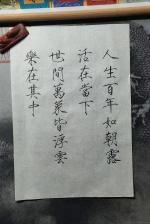 人生百年如朝露
活在當下
世間萬象皆浮雲
樂在其中